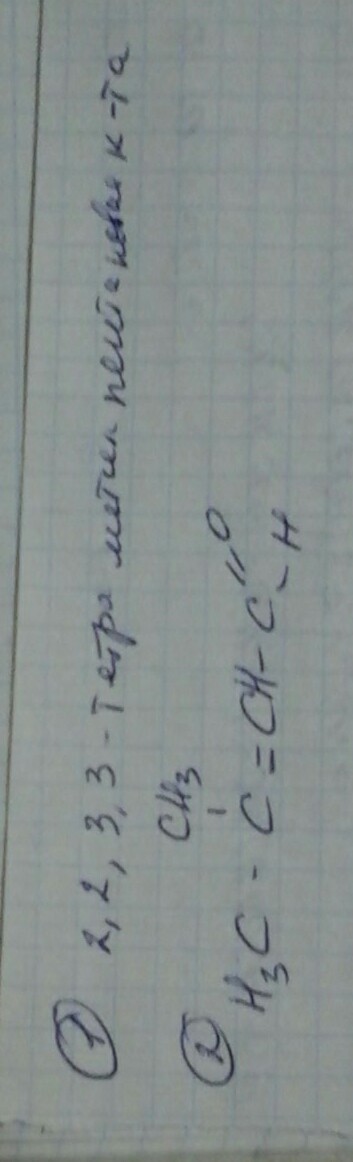 ① 2,2,3,3-тетра метил пентановая к-та
② CH₃
H₃C - C = CH - C =O - H